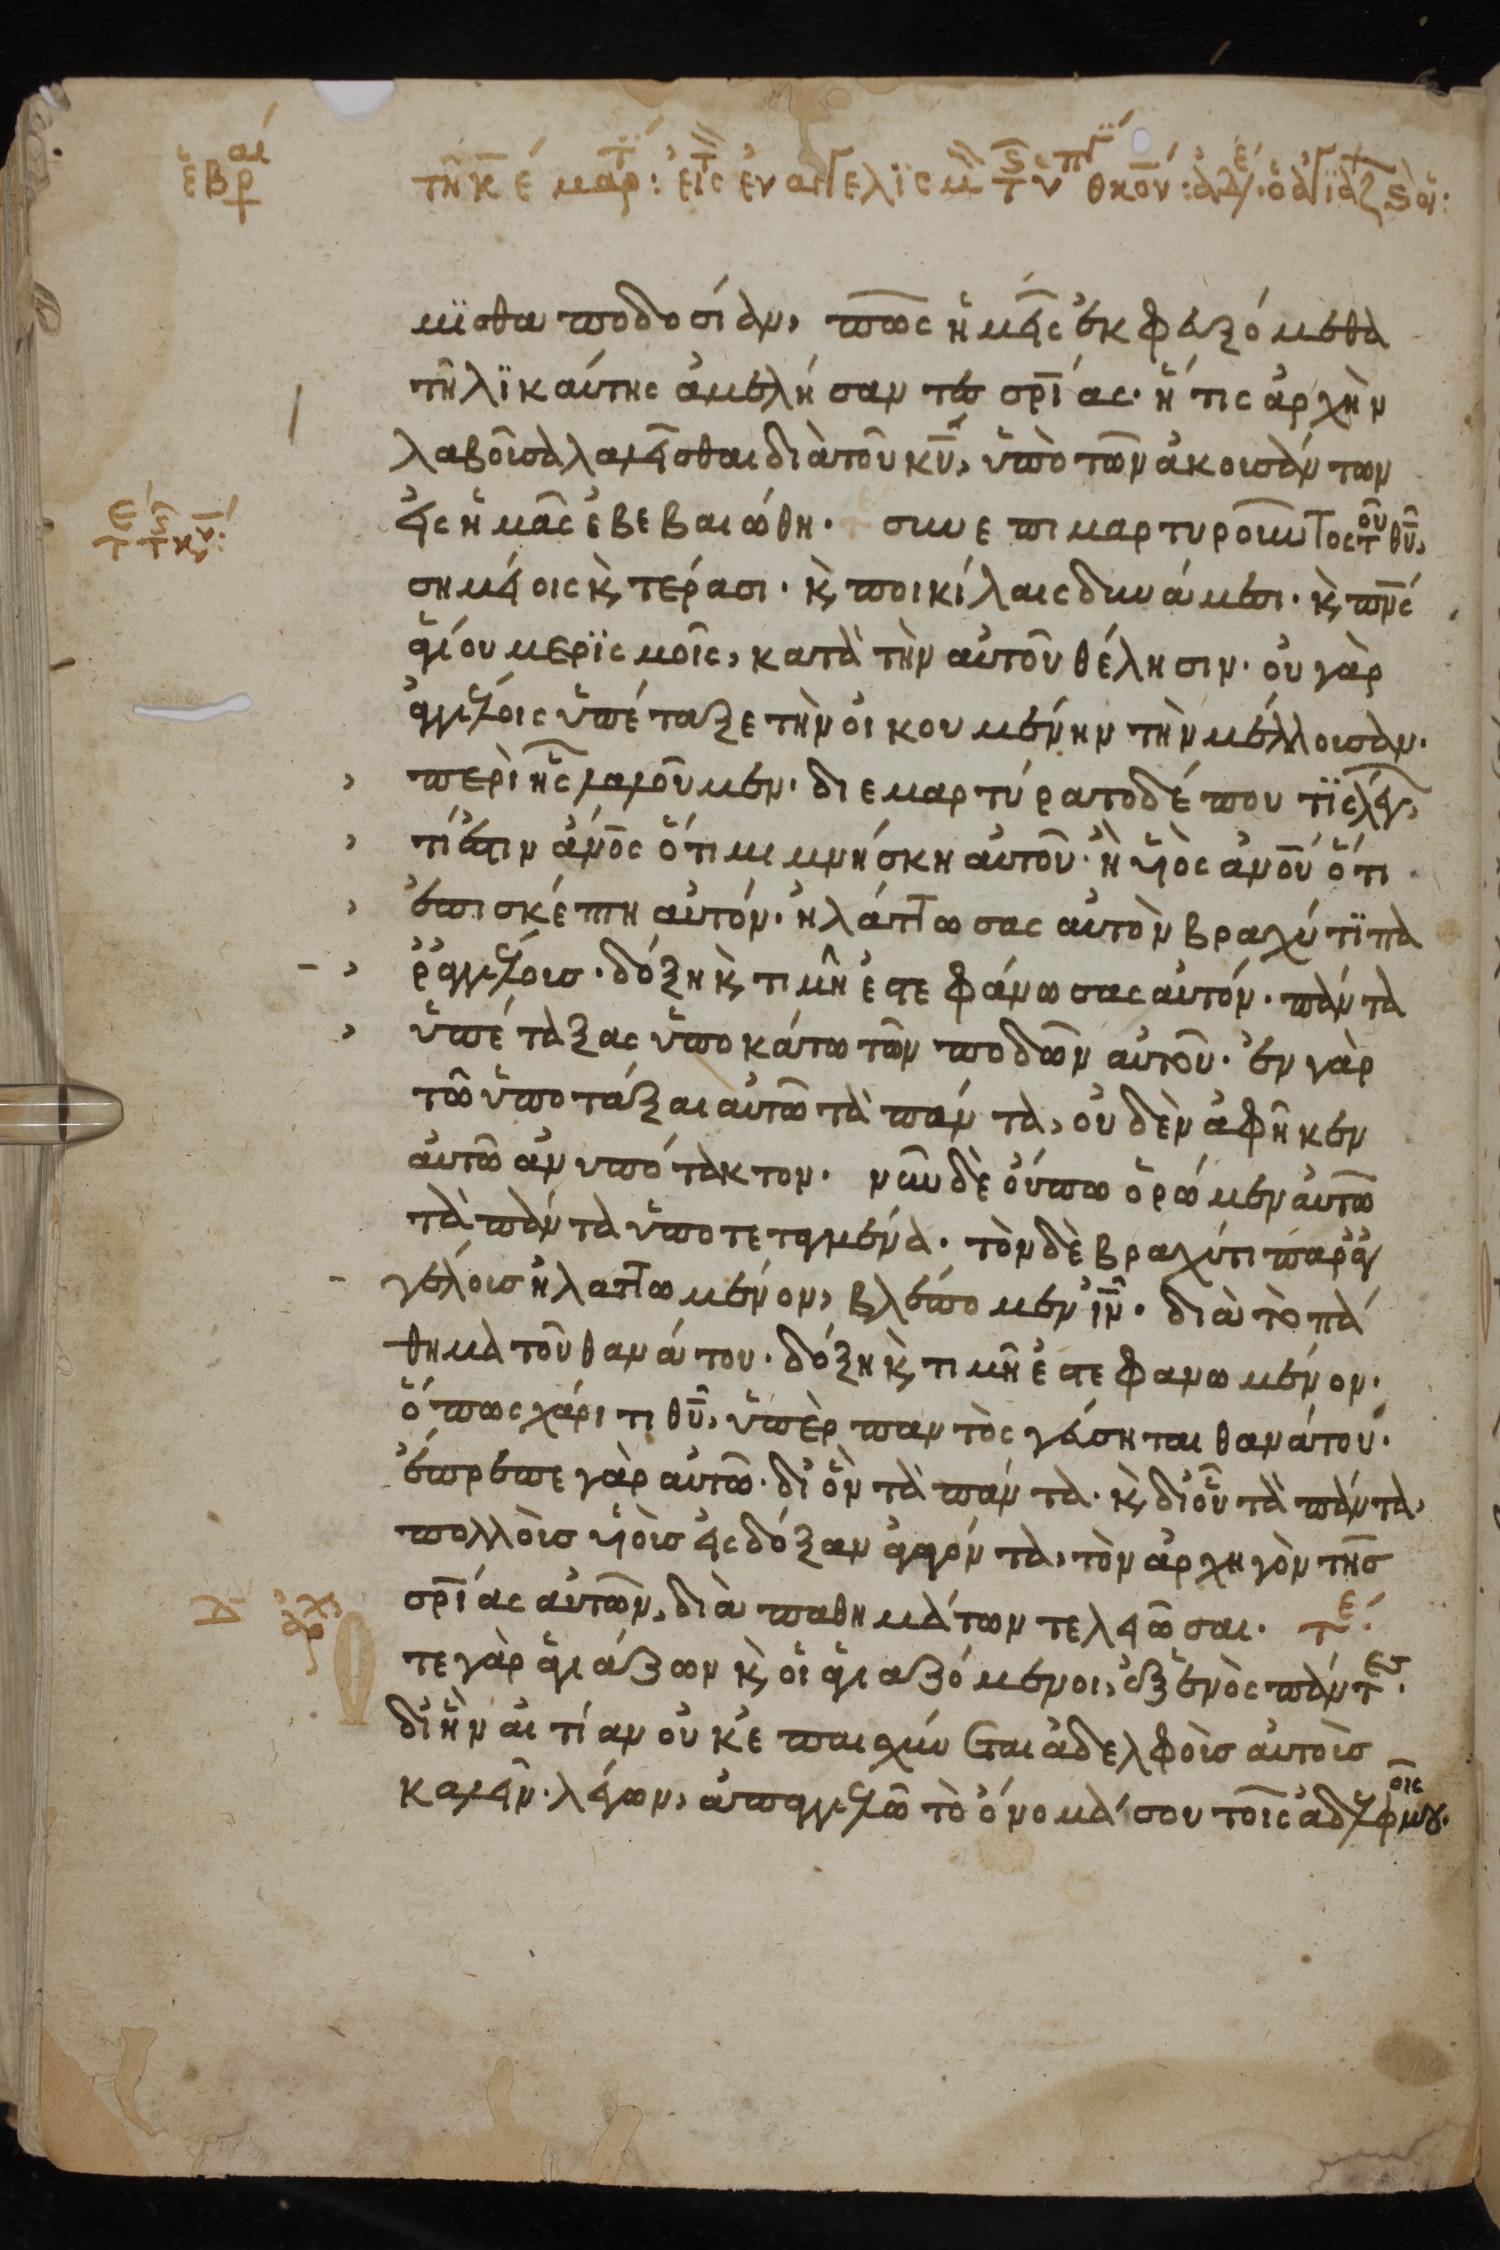 ἑβραι
τῆ κε μαρ: εἰς ἐναγγελισμ
μϊσθαποδοσίαν, πῶς ἡμεῖς ἐκφευξόμεθα
τηλϊκαύτης ἀμελήσαντες σρίας· ἥτις ἀρχὴν
λαβοῦσα λαλεῖσθαι διὰ τοῦ κυ, ὑπὸ τῶν ἀκουσάντων
εἰς ἡμᾶς ἐβεβαιώθη· συνεπιμαρτυροῦντος τοῦ θυ,
σημείοις κ τέρασι· κ ποικίλαις δυνάμεσι· κ πνς
ἁγίου μερϊσμοῖς, κατὰ τὴν αὐτοῦ θέλησιν· οὐ γὰρ
ἀγγέλοις ὑπέταξε τὴν οἰκουμένην τὴν μέλλουσαν·
περὶ ἧς λαλοῦμεν· διεμαρτύρατο δέ που τϊς λέγων,
τί ἐστιν ἀνος ὅτι μιμνήσκη αὐτοῦ· ἢ υἱὸς ἀνου ὅτι
ἐπισκέπτη αὐτόν· ἠλάττωσας αὐτὸν βραχύ τϊ πα
ρ ἀγγέλοις· δόξη κ τιμῆ ἐστεφάνωσας αὐτόν· πάντα
ὑπέταξας ὑποκάτω τῶν ποδῶν αὐτοῦ· ἐν γὰρ
τῶ ὑποτάξαι αὐτῶ τὰ πάντα, οὐδὲν ἀφῆκεν
αὐτῶ ἀνυπότακτον· νῦν δὲ οὔπω ὁρῶμεν αὐτῶ
τὰ πάντα ὑποτεταγμένα· τὸν δὲ βραχύ τι παρ ἀγ
γέλοις ἠλαττωμένον, βλέπομεν ιν· διὰ τὸ πά
θημα τοῦ θανάτου· δόξη κ τιμῆ ἐστεφανωμένον·
ὅπως χάριτι θυ, ὑπὲρ παντὸς γεύσηται θανάτου·
ἔπρεπε γὰρ αὐτῶ· δι ὃν τὰ πάντα· κ δι οὗ τὰ πάντα,
πολλοὺς υἱοὺς εἰς δόξαν ἀγαγόντα, τὸν ἀρχηγὸν τῆς
σρίας αὐτῶν, διὰ παθημάτων τελειῶσαι· τε
τε γὰρ ἁγιάζων κ οἱ ἁγιαζόμενοι, ἐξ ἑνὸς πάντες·
δι ἣν αἰτίαν οὐκ ἐπαισχύνεται ἀδελφοὺς αὐτοὺς
καλεῖν· λέγων, ἀπαγγελῶ τὸ ὄνομά σου τοῖς ἀδελφοῖς μου·